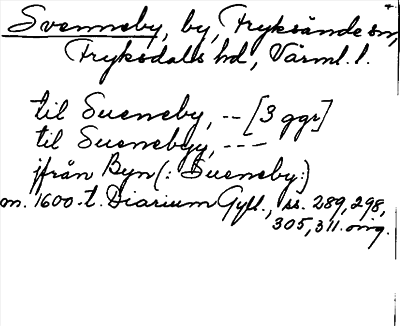 Svenneby, by, Fryksände sn,
Fryksdals hd, Värml. l.
til Sueneby, -- [3 ggr]
til Suenebyy, ---
ifrån Byn (: Sueneby:)
m. 1600-t. Diarium Gyll., ss. 289, 298,
305, 311. orig.